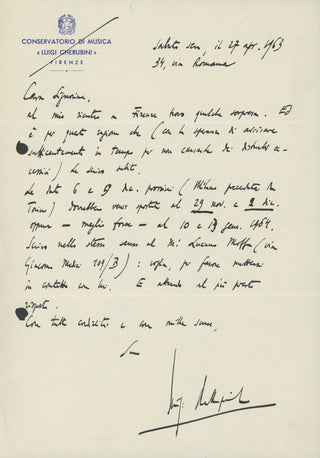 CONSERVATORIO DI MUSICA
« LUIGI CHERUBINI »
FIRENZE
Sabato sera, il 27 apr. 1963
34, via Romana
Cara Signorina,
al mio rientro a Firenze, trovo qualche sorpresa. Ed
è per questa ragione che (con la speranza di arrivare
sufficientemente in tempo per non causarle dei disturbi ec-
cessivi) Le scrivo subito.
Le date 6 e 9 dic. prossimi (Milano precedente
Torino) dovrebbero venir spostate al 29 nov. e 2 dic.
oppure - meglio forse - al 10 e 13 genn. 1964.
Scrivo nello stesso senso al M° Luciano (via
Giacomo Medici 109/B): voglia, per favore mettersi
in contatto con lui. E attendo al più presto
risposta.
Con tutta cordialità e con mille scuse,
Suo